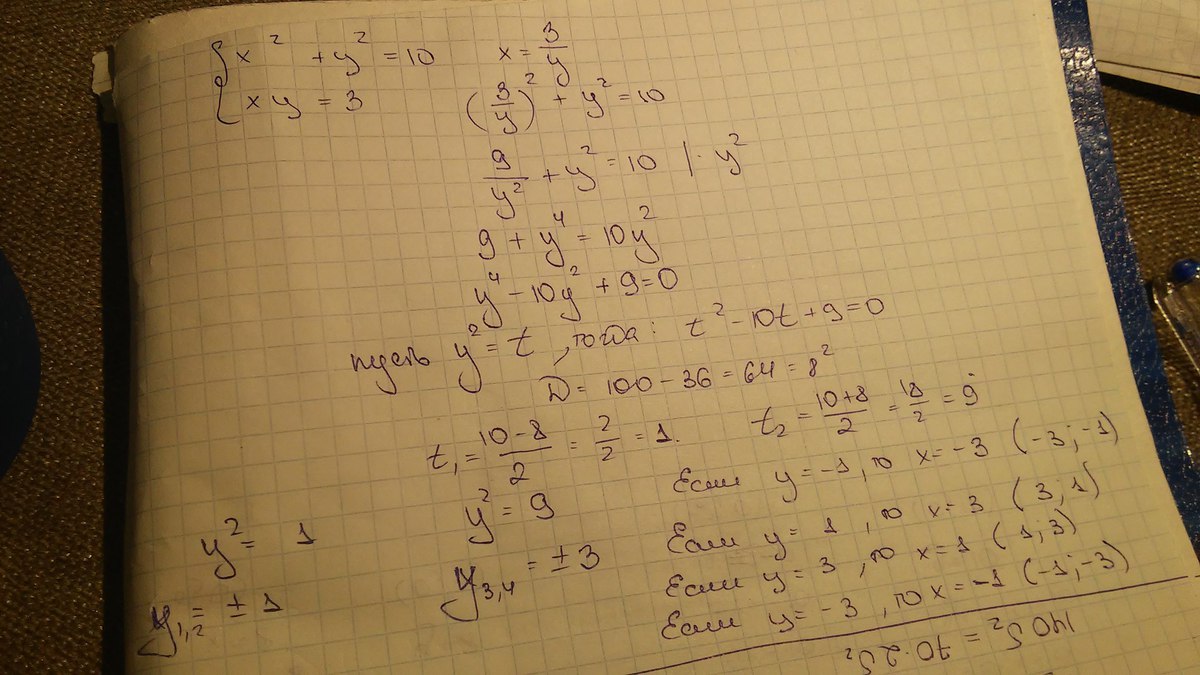 { x² + y² = 10
{ xy = 3
x = 3/y
(3/y)² + y² = 10
9/y² + y² = 10 | · y²
9 + y⁴ = 10y²
y⁴ - 10y² + 9 = 0
пусть y² = t, тогда: t² - 10t + 9 = 0
D = 100 - 36 = 64 = 8²
t₁ = (10 - 8)/2 = 2/2 = 1.
t₂ = (10 + 8)/2 = 18/2 = 9
y² = 1
y₁,₂ = ± 1
y² = 9
y₃,₄ = ± 3
Если y = -1, то x = -3 (-3; -1)
Если y = 1, то x = 3 (3; 1)
Если y = 3, то x = 1 (1; 3)
Если y = -3, то x = -1 (-1; -3)
140 S₂ = 70 · 2S₂